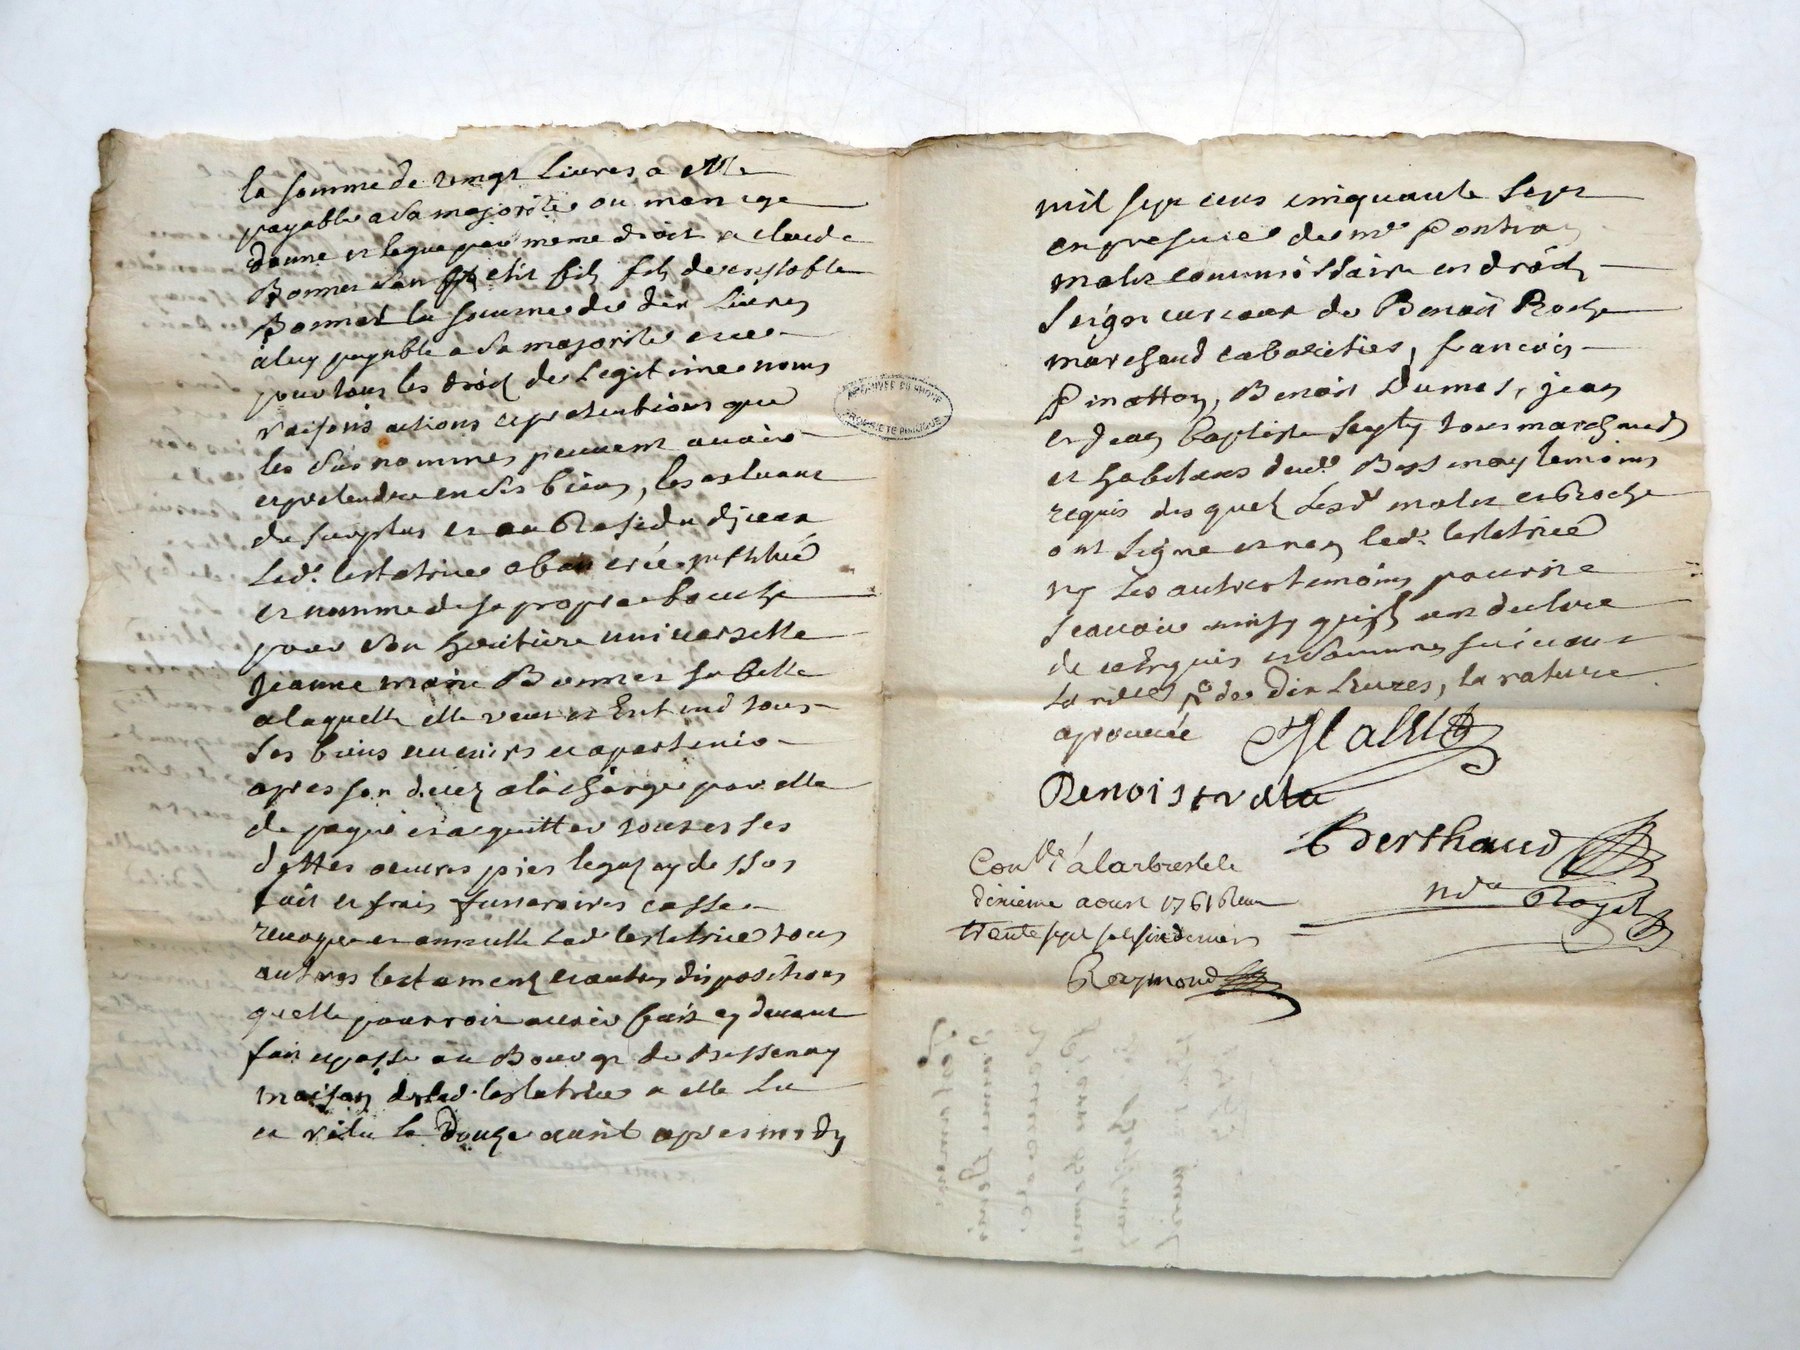 la somme de vingt livres a elle
payable a sa majorité ou mariage
donne et legue par meme droit a claude
Bonnet son petit fils fils de
Bonnet la somme de dix livres
a luy payable a sa majorite et ce
pour tous les droits de legitime noms
raisons actions et pretentions que
les sus nommes peuvent avoir
et pretendre en ses biens, les
du surplus et au Residu djceux
Led.e testatrice a institué
et nomme de sa propre bouche
pour son heritiere universelle
jeanne marie Bonnet sa belle
a laquelle elle veut et Entend tous
ses biens avenirs et apartenir
apres son deces a la charge par elle
de payé et acquitter toutes ses
dettes oeuvres pies legaz cy dessos
fait et frais funeraires casse
revoque et annulle Lad.e testatrice tous
autres testamens et autres dispositions
quelle pourroit avoir fait cy devant
fait et passe au Bourg de Bessenay
maison de lad.e testatrice a elle Lu
et relu le Douze avril apres midy
mil sept cens cinquante sept
en presence de mr
malet commissaire en droits
Seigneuriaux de Benoit Roche
marchand cabaretier, francois
Pinatton, Benoit Dumas, jean
et jean baptiste tous marchands
et habitans dud. Bessenay temoins
requis des quels Lesd. malet et Roche
ont signé et non lad.e testatrice
ny Les autres temoins pour ne
scavoir ainsy quils ont declare
de ce Enquis et sommes suivant
de Dix Livres, la rature
aprouvée Malet
Benoist roche
Berthaud
nre Royal
Con.lle a larbresle le
dixieme aoust 1761 Recu
trente sept sols six deniers
Raymond
ARCHIVES DU RHONE
PROPRIETE PUBLIQUE